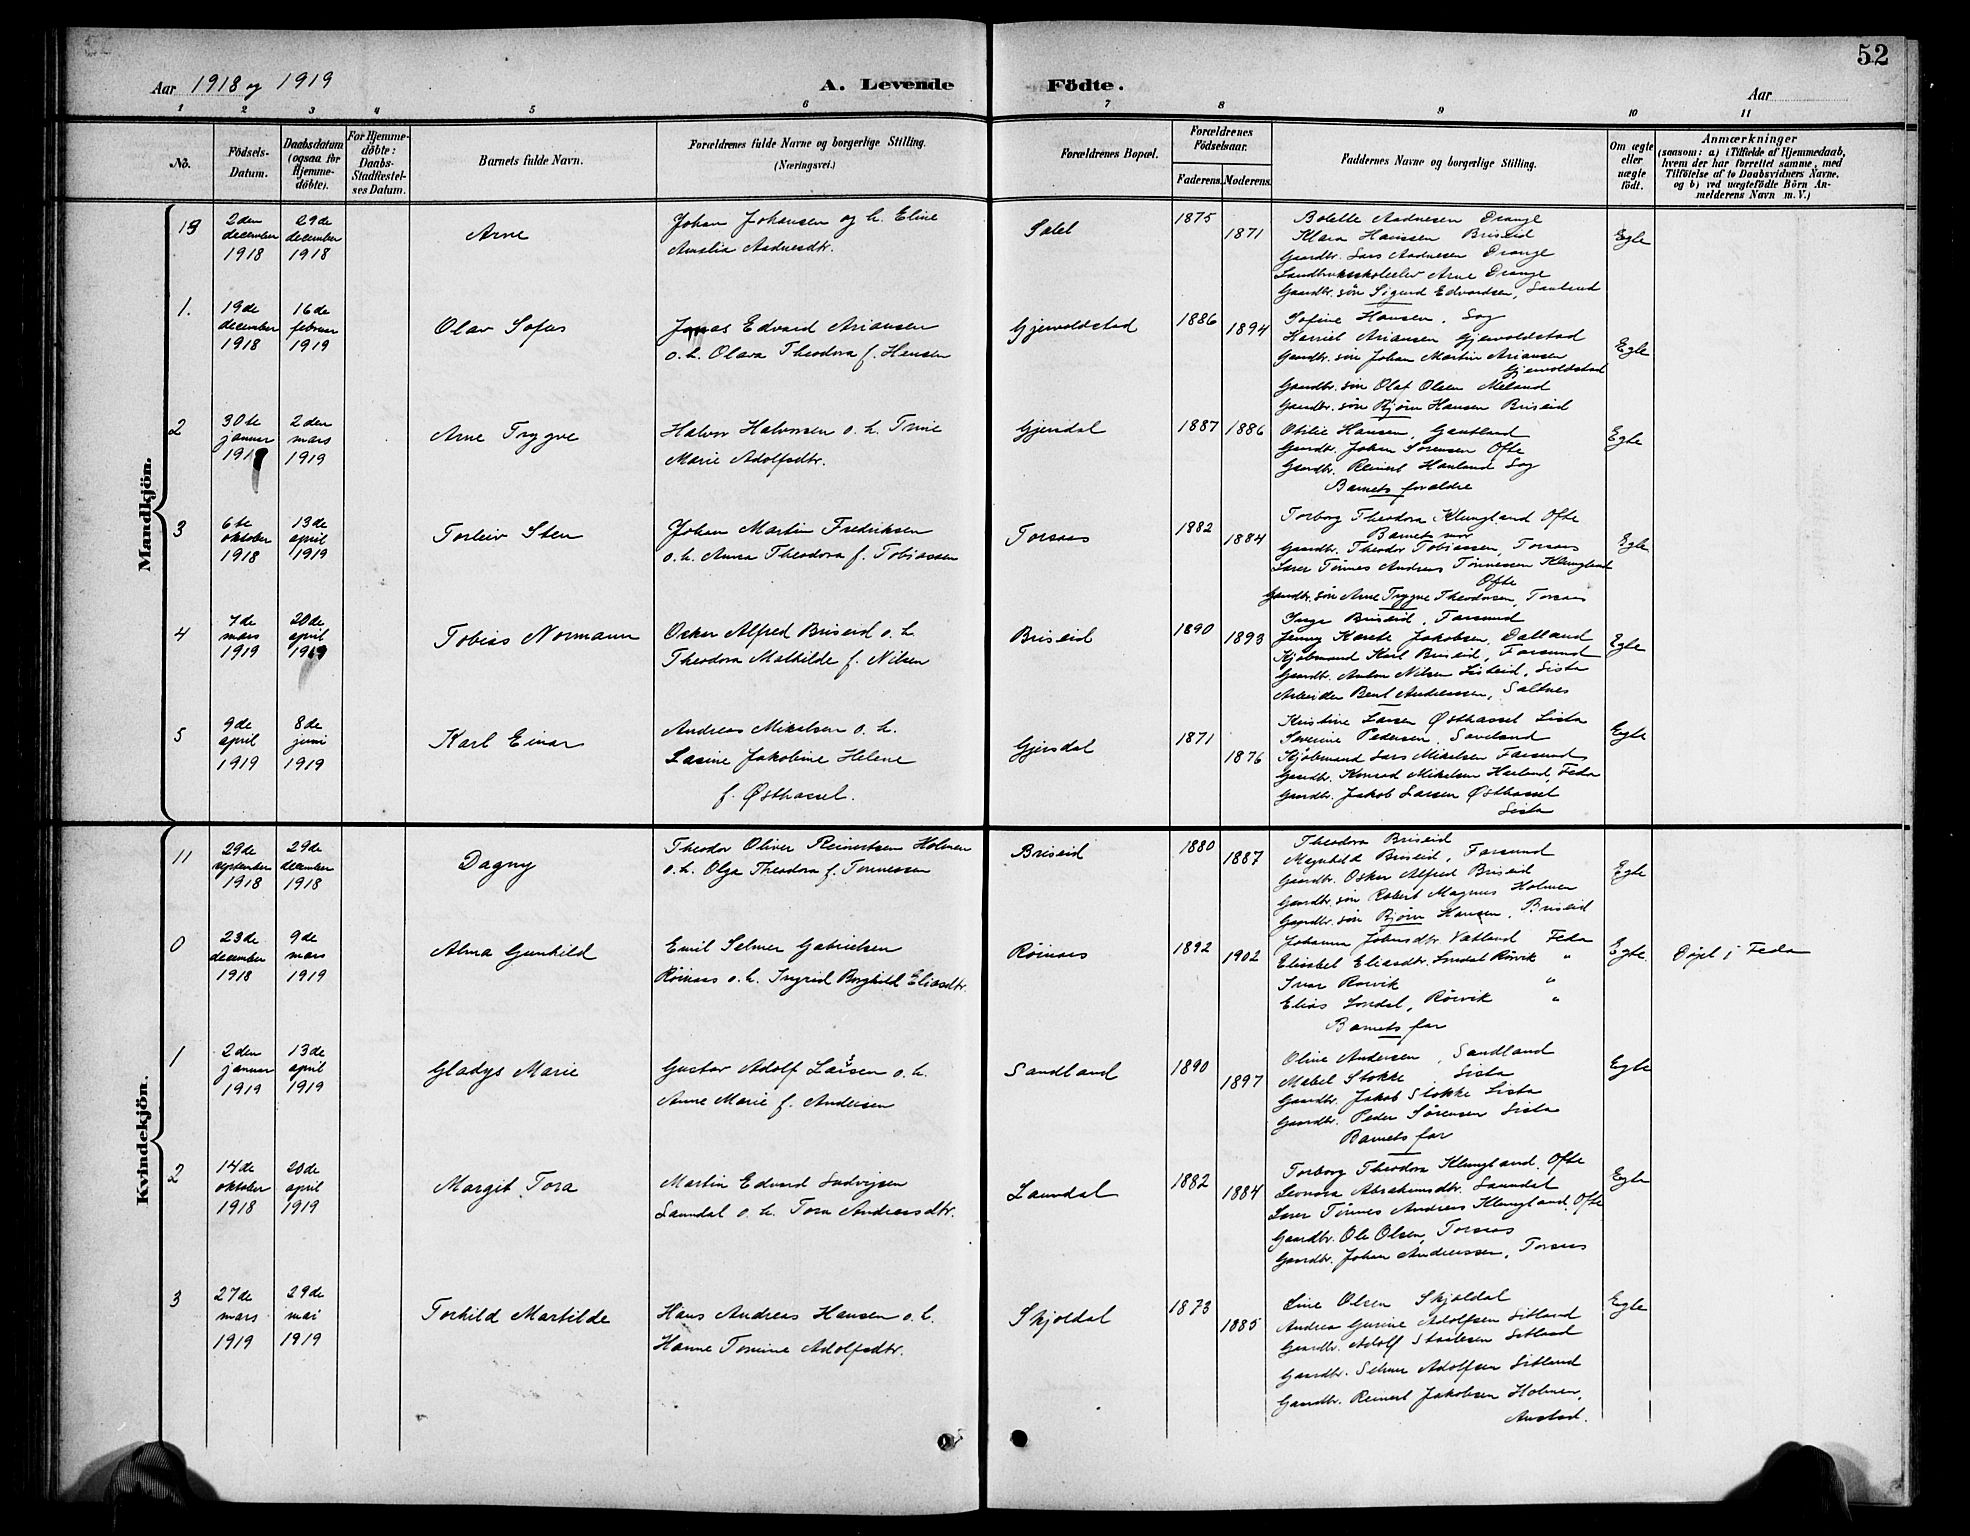 52
Aar 1918 og 1919
A. Levende
Födte.
Aar
1 2 3 4 5 6 7 8 9 10 11
No.
Födsels-
Datum.
Daabsdatum
(ogsaa for
Hjemme-
döbte).
For Hjemme-
döbte:
Daabs-
Stadfæstel-
ses Datum.
Barnets fulde Navn.
Forældrenes fulde Navne og borgerlige Stilling.
(Næringsvei.)
Forældrenes Bopæl.
Forældrenes
Födselsaar.
Faderens. Moderens.
Faddernes Navne og borgerlige Stilling.
Om ægte
eller
uægte
födt.
Anmærkninger
(saasom: a) i Tilfælde af Hjemmedaab,
hvem der har forrettet samme, med
Tilföielse af to Daabsvidners Navne.
og b) ved uægtefödte Börn An-
melderens Navn m. V.)
Mandkjön.
19
2den
december
1918
29de
december
1918
Arne
Johan Johansen og h. Eline
Amalia Aadnesdtr.
1875
1871
Bolette Aadnesen Drange
Klara Hanssen Briseid
Gaardbr. Lars Aadnesen Drange
Landbruksskoleelev Arne Drange
Gaardbr. søn Sigurd Edvardsen,
Egte
1.
19de
december
1918
16de
februar
1919
Olav Sofus
Jonas Edvard Ariansen
o. h. Olava Theodora f. Hansen
Gjervoldstad
1886
1894
Sofine Hansen, Log
Ariansen Gjervoldstad
Gaardbr. søn Johan Martin Ariansen
Gjervoldstad
Gaardbr. søn Olaf Olsen Meland
Gaardbr. søn Bjørn Hansen Briseid
Egte
2
30te
januar
1919
2den
mars
1919
Arne Trygve
Halvor Halvorsen o. h. Trine
Marie Adolfsdtr.
Gjersdal
1887
1886
Otilie Hansen, Gautland
Gaardbr. Johan Sørensen Ofte
Gaardbr. Reinert Hauland Log
Barnets forældre
Egte
3
6te
oktober
1918
13de
april
1919
Torleiv Sten
Johan Martin Fredriksen
o. h. Anna Theodora f. Tobiassen
Torsaas
1882
1884
Torborg Theodora Klungland Ofte
Barnets mor
Gaardbr. Theodor Tobiassen, Torsaas
Lærer Tønnes Andreas Tønnessen Klungland
Ofte
Gaardbr. søn Arne Trygve Theodorsen, Torsaas
Egte
4
7de
mars
1919
20de
april
1919
Tobias Normann
Osker Alfred Briseid o. h.
Theodora Mathilde f. Nilsen
Briseid
1890
1893
Inge Briseid, Farsund
Jenny Karete Jakobsen, Dalland
Kjøbmand Karl Briseid, Farsund
Gaardbr. Anton Nilsen Listeid, Lista
Arbeider Bent Andreassen, Saltnes
Egte
5
9de
april
1919
8de
juni
1919
Karl Einar
Andreas Mikalsen o. h.
Lasine Jakobine Helene
f. Østhassel.
Gjersdal
1871
1876
Kristine Larsen Østhassel Lista
Severine Pedersen,
Kjøbmand Lars Mikalsen Farsund
Gaardbr. Konrad Mikalsen Hauland, Feda
Gaardbr. Jakob Larsen Østhassel
Lista
Egte
Kvindekjön.
11
29de
september
1918
29de
december
1918
Dagny
Theodor Oliver Reinertsen Holmen
o. h. Olga Theodora f. Tønnessen
Briseid
1880
1887
Theodora Briseid
Magnhild Briseid, Farsund
Gaardbr. Osker Alfred Briseid
Gaardbr. søn Robert Magnus Holmen
Gaardbr. søn Bjørn Hansen, Briseid
Egte
0
23de
december
1918
9de
mars
1919
Alma Gunhild
Emil Selmer Gabrielsen
Røinaas o. h. Ingrid Borghild Eliasdtr.
Røinaas
1892
1902
Johanna Johnsdtr. Vatland Feda
Elisabet Eliasdtr. Londal Rørvik "
Ivar Rørvik "
Elias Londal, Rørvik "
Barnets far
Egte.
Døpt i Feda
1
2den
januar
1919
13de
april
1919
Gladys Marie
Gustav Adolf Larsen o. h.
Anne Marie f. Andersen
Sandland
1890
1897
Oline Andersen, Sandland
Mabel Stokke Lista
Gaardbr. Jakob Stokke Lista
Gaardbr. Peder Sørensen Lista
Barnets far
Egte
2
14de
oktober
1918
20de
april
1919
Margit Tora
Martin Edvard Ludvigsen
Laundal o. h. Tora Andreasdtr.
Laundal
1882
1884
Torborg Theodora Klungland, Ofte
Leonora Abrahamsdtr. Laundal
Lærer Tønnes Andreas Klungland, Ofte
Gaardbr. Ole Olsen, Torsaas
Gaardbr. Johan Andreassen, Torsaas
Egte
3
27de
mars
1919
29de
mai
1919
Torhild Martilde
Hans Andreas Hansen o. h.
Hanne Tomine Adolfsdtr.
Skjoldal
1873
1885
Line Olsen Skjoldal
Andrea Gurine Adolfsen Sitland
Gaardbr. Adolf Staalesen Sitland
Gaardbr. Selmer Adolfsen Sitland
Gaardbr. Reinert Jakobsen Holmen,
Austad.
Egte